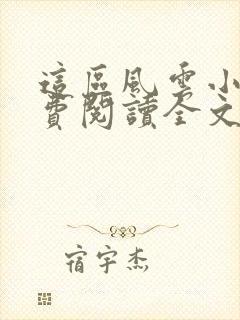 這區風雲小
費閱讀全文
宿宇杰